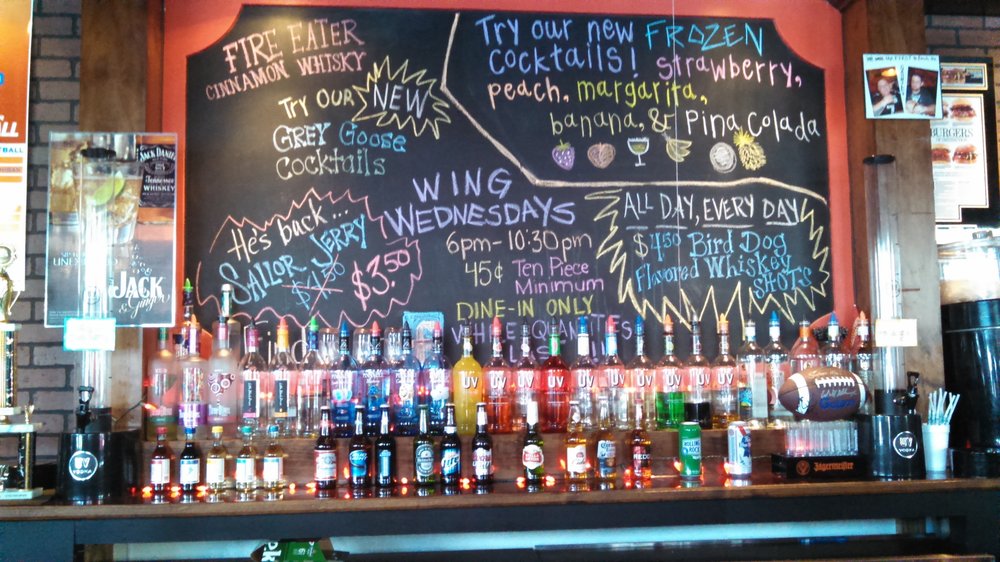 FIRE EATER
CINNAMON WHISKY
TRY OUR
NEW
GREY Goose
Cocktails
Try our new FROZEN
cocktails! strawberry,
peach, margarita,
banana, & Pina Colada
He's back...
SAILOR JERRY
$4.50 $3.50
WING
WEDNESDAYS
6pm-10:30pm
45¢ Ten Piece
Minimum
DINE-IN ONLY
WHILE QUANTITIES
LAST!!
ALL DAY, EVERY DAY
$4.50 Bird Dog
Flavored Whiskey
SHOTS
JACK DANIEL'S
Tennessee
WHISKEY
JACK
& Ginger
BURGERS
UV
VODKA
UV
UV
UV
UV
UV
UV
UV
UV
ROLLING
ROCK
Jägermeister
UV
VODKA